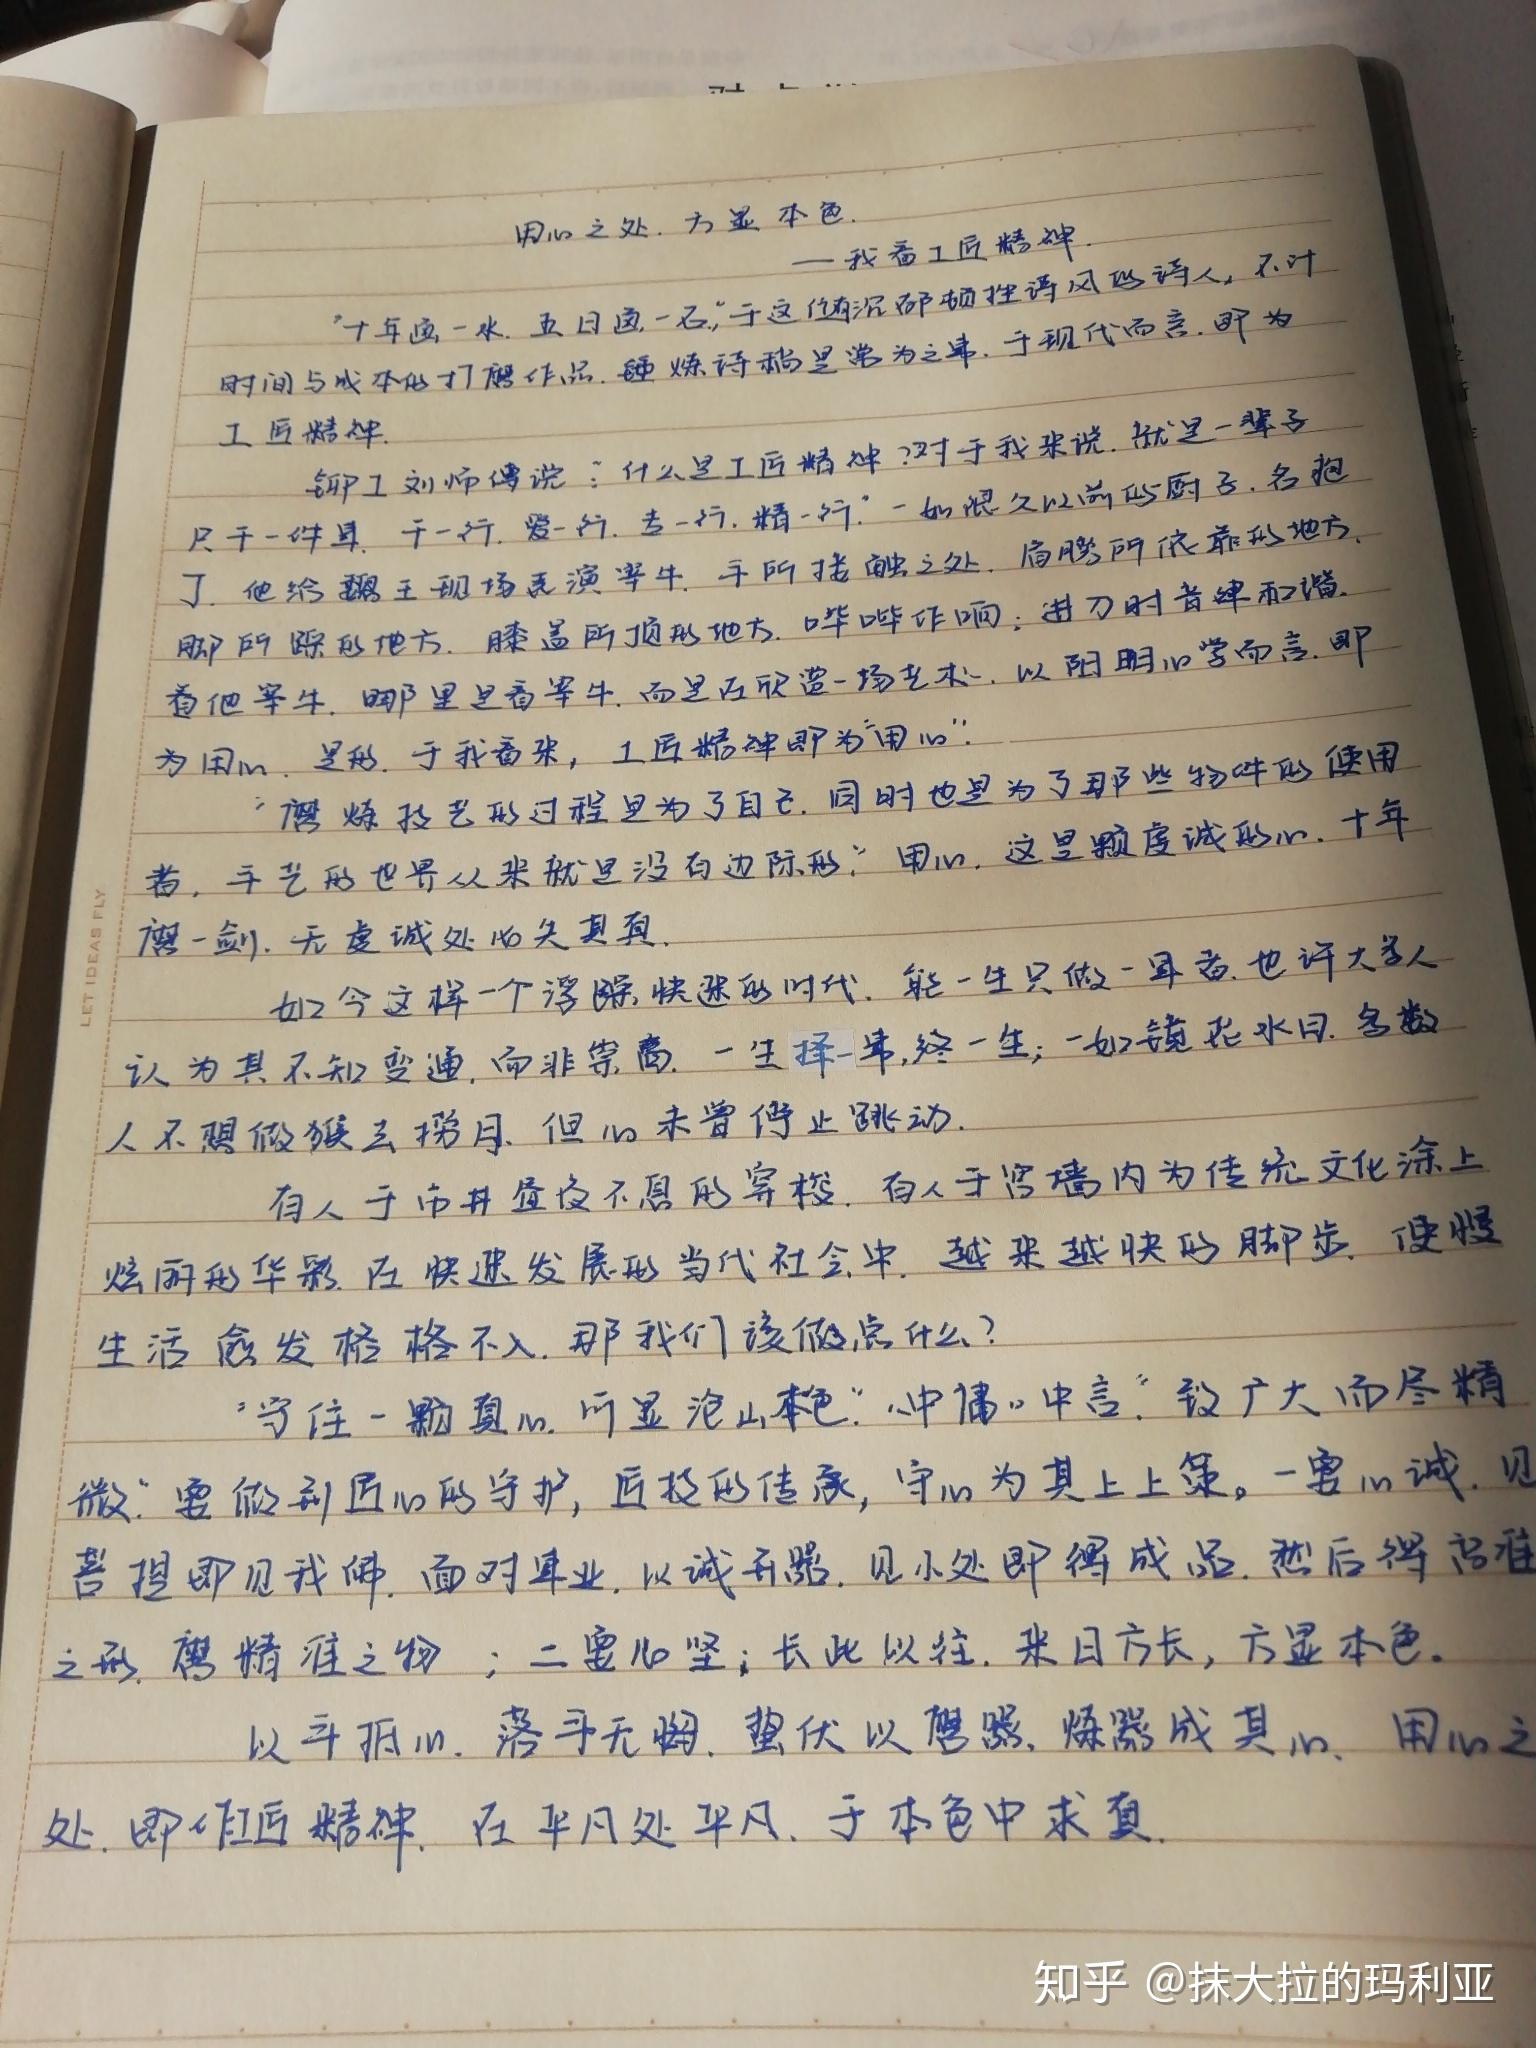 用心之处.方显本色.
——我看工匠精神.
"十年画一水.五日画一石,"于这位有沉郁顿挫诗风的诗人,不计
时间与成本的打磨作品.锤炼诗稿是常为之事.于现代而言.即为
工匠精神.
铆工刘师傅说:"什么是工匠精神?对于我来说.就是一辈子
只干一件事.干一行.爱一行.专一行.精一行."一如很久以前的厨子.名庖
丁.他给 王现场表演宰牛.手所接触之处.肩膀所依靠的地方.
脚所踩的地方.膝盖所顶的地方.哗哗作响;进刀时音律和谐.
看他宰牛.哪里是看宰牛.而是在欣赏一场艺术.以阳明心学而言.即
为用心.是的.于我看来,工匠精神即为"用心".
"磨炼技艺的过程是为了自己.同时也是为了那些物件的使用
者.手艺的世界从来就是没有边际的."用心.这是颗虔诚的心.十年
磨一剑.无虔诚处必失其真.
如今这样一个浮躁快速的时代.能一生只做一事者.也许大多人
认为其不知变通.而非崇高.一生择一事,终一生;一如镜花水月.多数
人不想做猴去捞月.但心未曾停止跳动.
有人于市井昼夜不息的穿梭.有人于宫墙内为传统文化涂上
炫丽的华彩.在快速发展的当代社会中.越来越快的脚步.使慢
生活愈发格格不入.那我们该做点什么?
"守住一颗真心.所显沧山本色."《中庸》中言:"致广大而尽精
微."要做到匠心的守护,匠技的传承,守心为其上上策。一要心诚.见
菩提即见我佛.面对事业.以诚开器.见小处即得成品.然后得高准
之形.磨精准之物;二要心坚;长此以往.来日方长,方显本色。
以斗抵心.落斗无悔.蛰伏以磨器.炼器成其心.用心之
处.即作工匠精神.在平凡处平凡.于本色中求真.
LET IDEAS FLY
知乎 @抹大拉的玛利亚